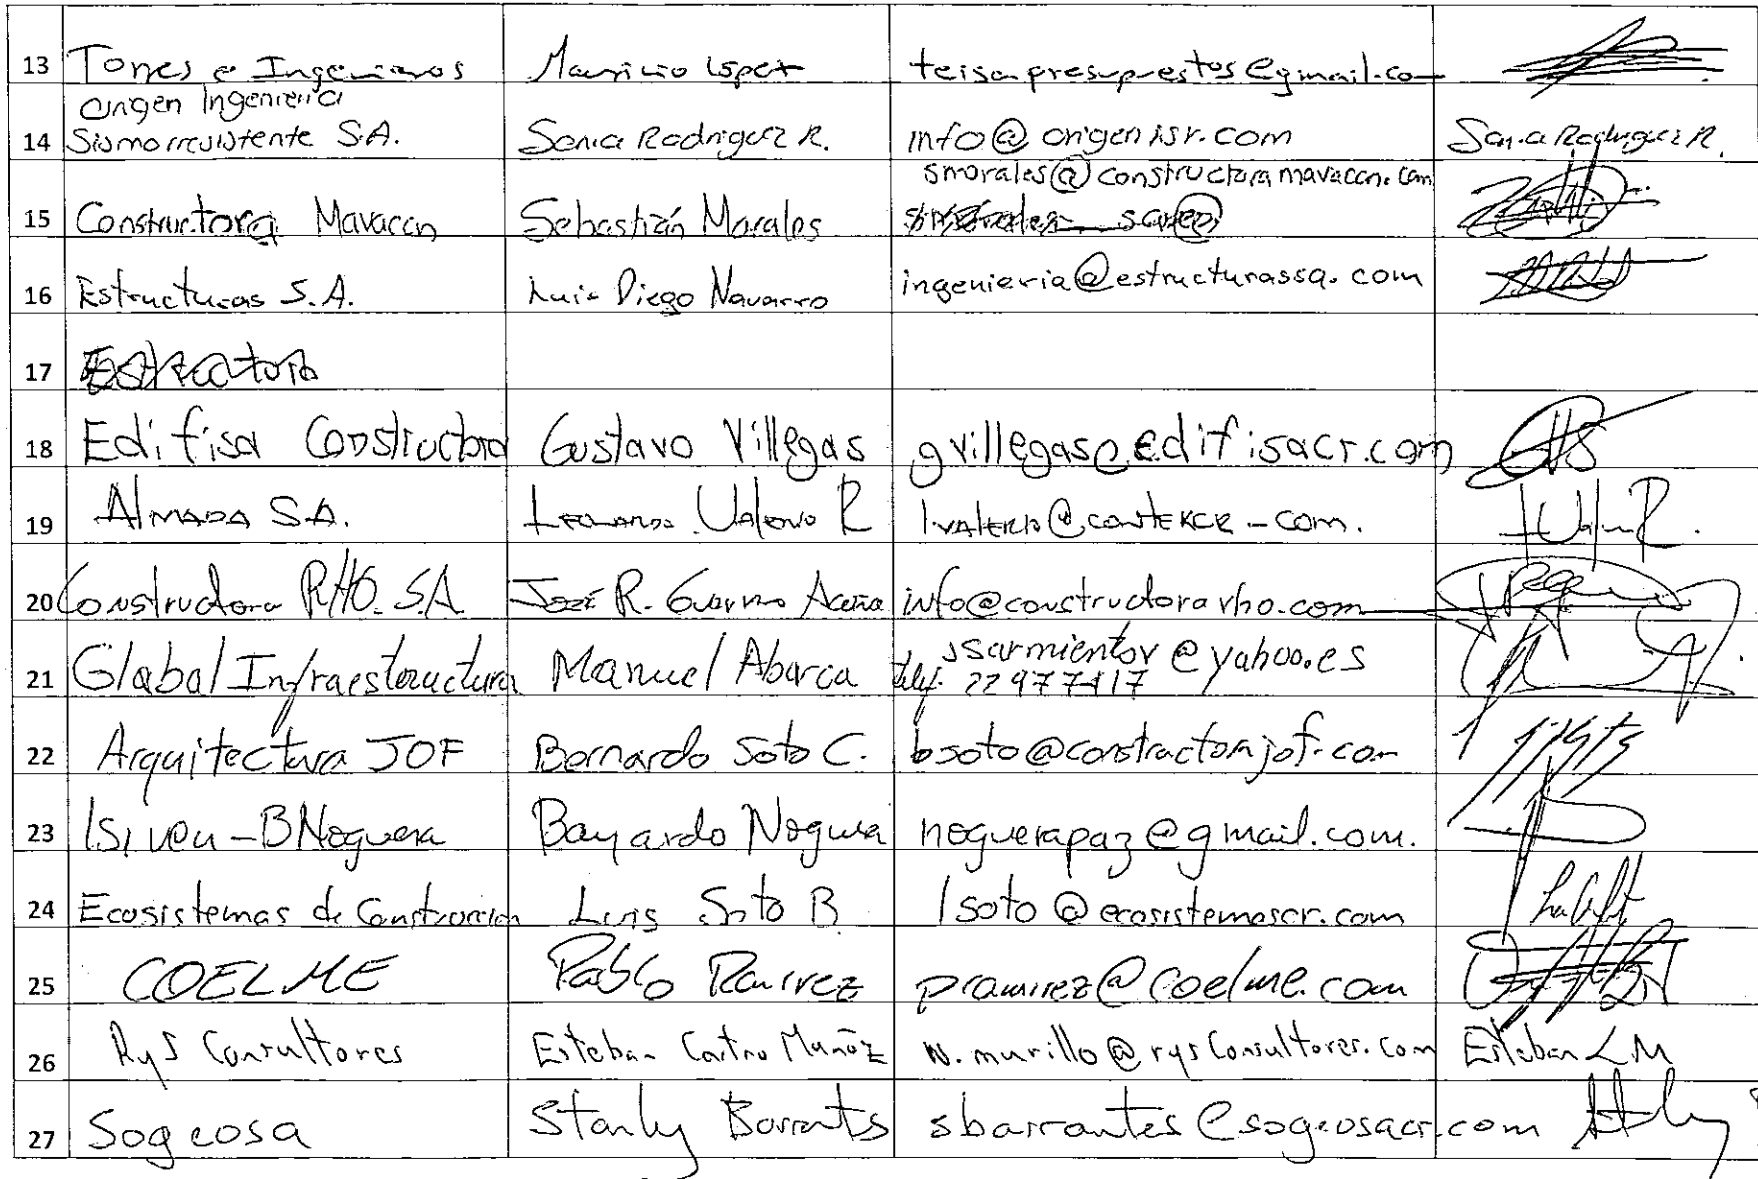 13 Torres e Ingenieros Mauricio López teisapresupuestos@gmail.co
Origen Ingeniería
14 Sismorresistente S.A. Sonia Rodríguez R. info@origenisr.com Sonia Rodríguez R.
smorales@constructoramavacon.com
15 Constructora Mavacon Sebastián Morales
16 Estructuras S.A. Luis Diego Navarro ingenieria@estructurassa.com
17
18 Edifisa Constructora Gustavo Villegas gvillegas@edifisacr.com
19 Almada S.A. Leonardo Valerio R
20 Constructora RHO. S.A. José R. Guerrero Acuña info@constructorarho.com
21 Global Infraestructura Manuel Abarca jsarmientov@yahoo.es
telf. 22977417
22 Arquitectura JOF Bernardo Soto C. bsoto@constructorajof.com
23 BNoguera Bayardo Noguera noguerapaz@gmail.com.
24 Ecosistemas de Construcción Luis Soto B. lsoto@ecosistemascr.com
25 COELME Pablo Ramírez pramirez@coelme.com
26 RyS Consultores Esteban Castro Muñoz w.murillo@rysconsultores.com Esteban
27 Sogeosa Stanly Barrantes sbarrantes@sogeosacr.com